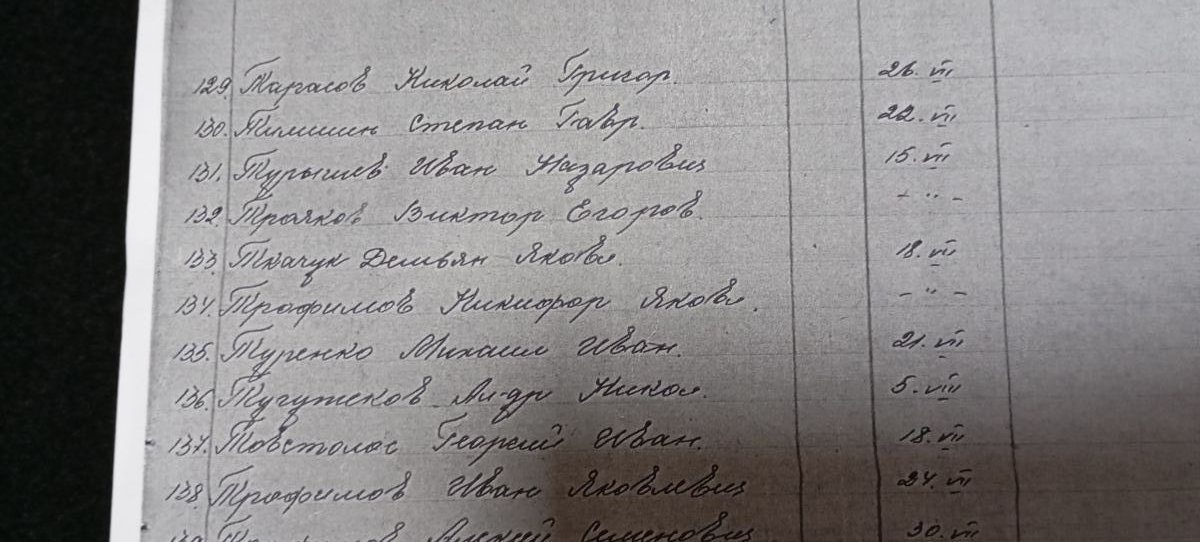 129. Тарасов Николай Григор. 26. VII
130. Тимшин Степан Гавр. 22. VII
131. Турышев Иван Назарович 15. VII
132. Трояков Виктор Егоров. - " -
133. Ткачук Демьян Яковл. 18. VII
134. Трофимов Никифор Яковл. - " -
135. Туренко Михаил Иван. 21. VII
136. Тугужеков Ал-др Никол. 5. VIII
137. Товстолос Георгий Иван. 18. VII
138. Трофимов Иван Яковлевич 24. VII
Семенович 30. VII